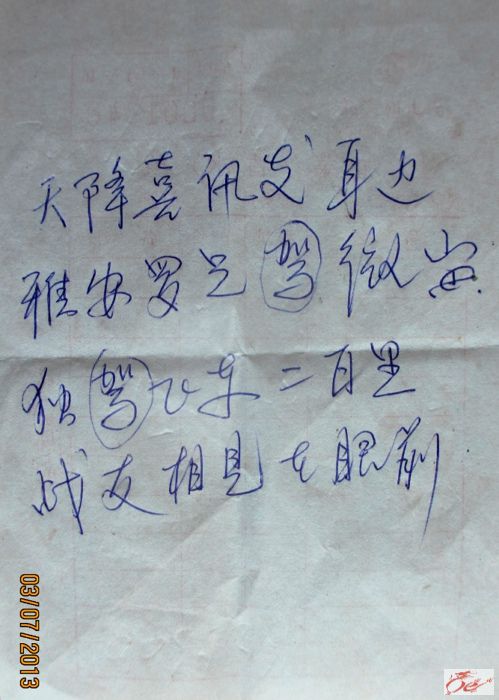 天降喜讯发耳边
雅安罗兄驾微
独驾飞车二百里
战友相见在眼前
03/07/2013